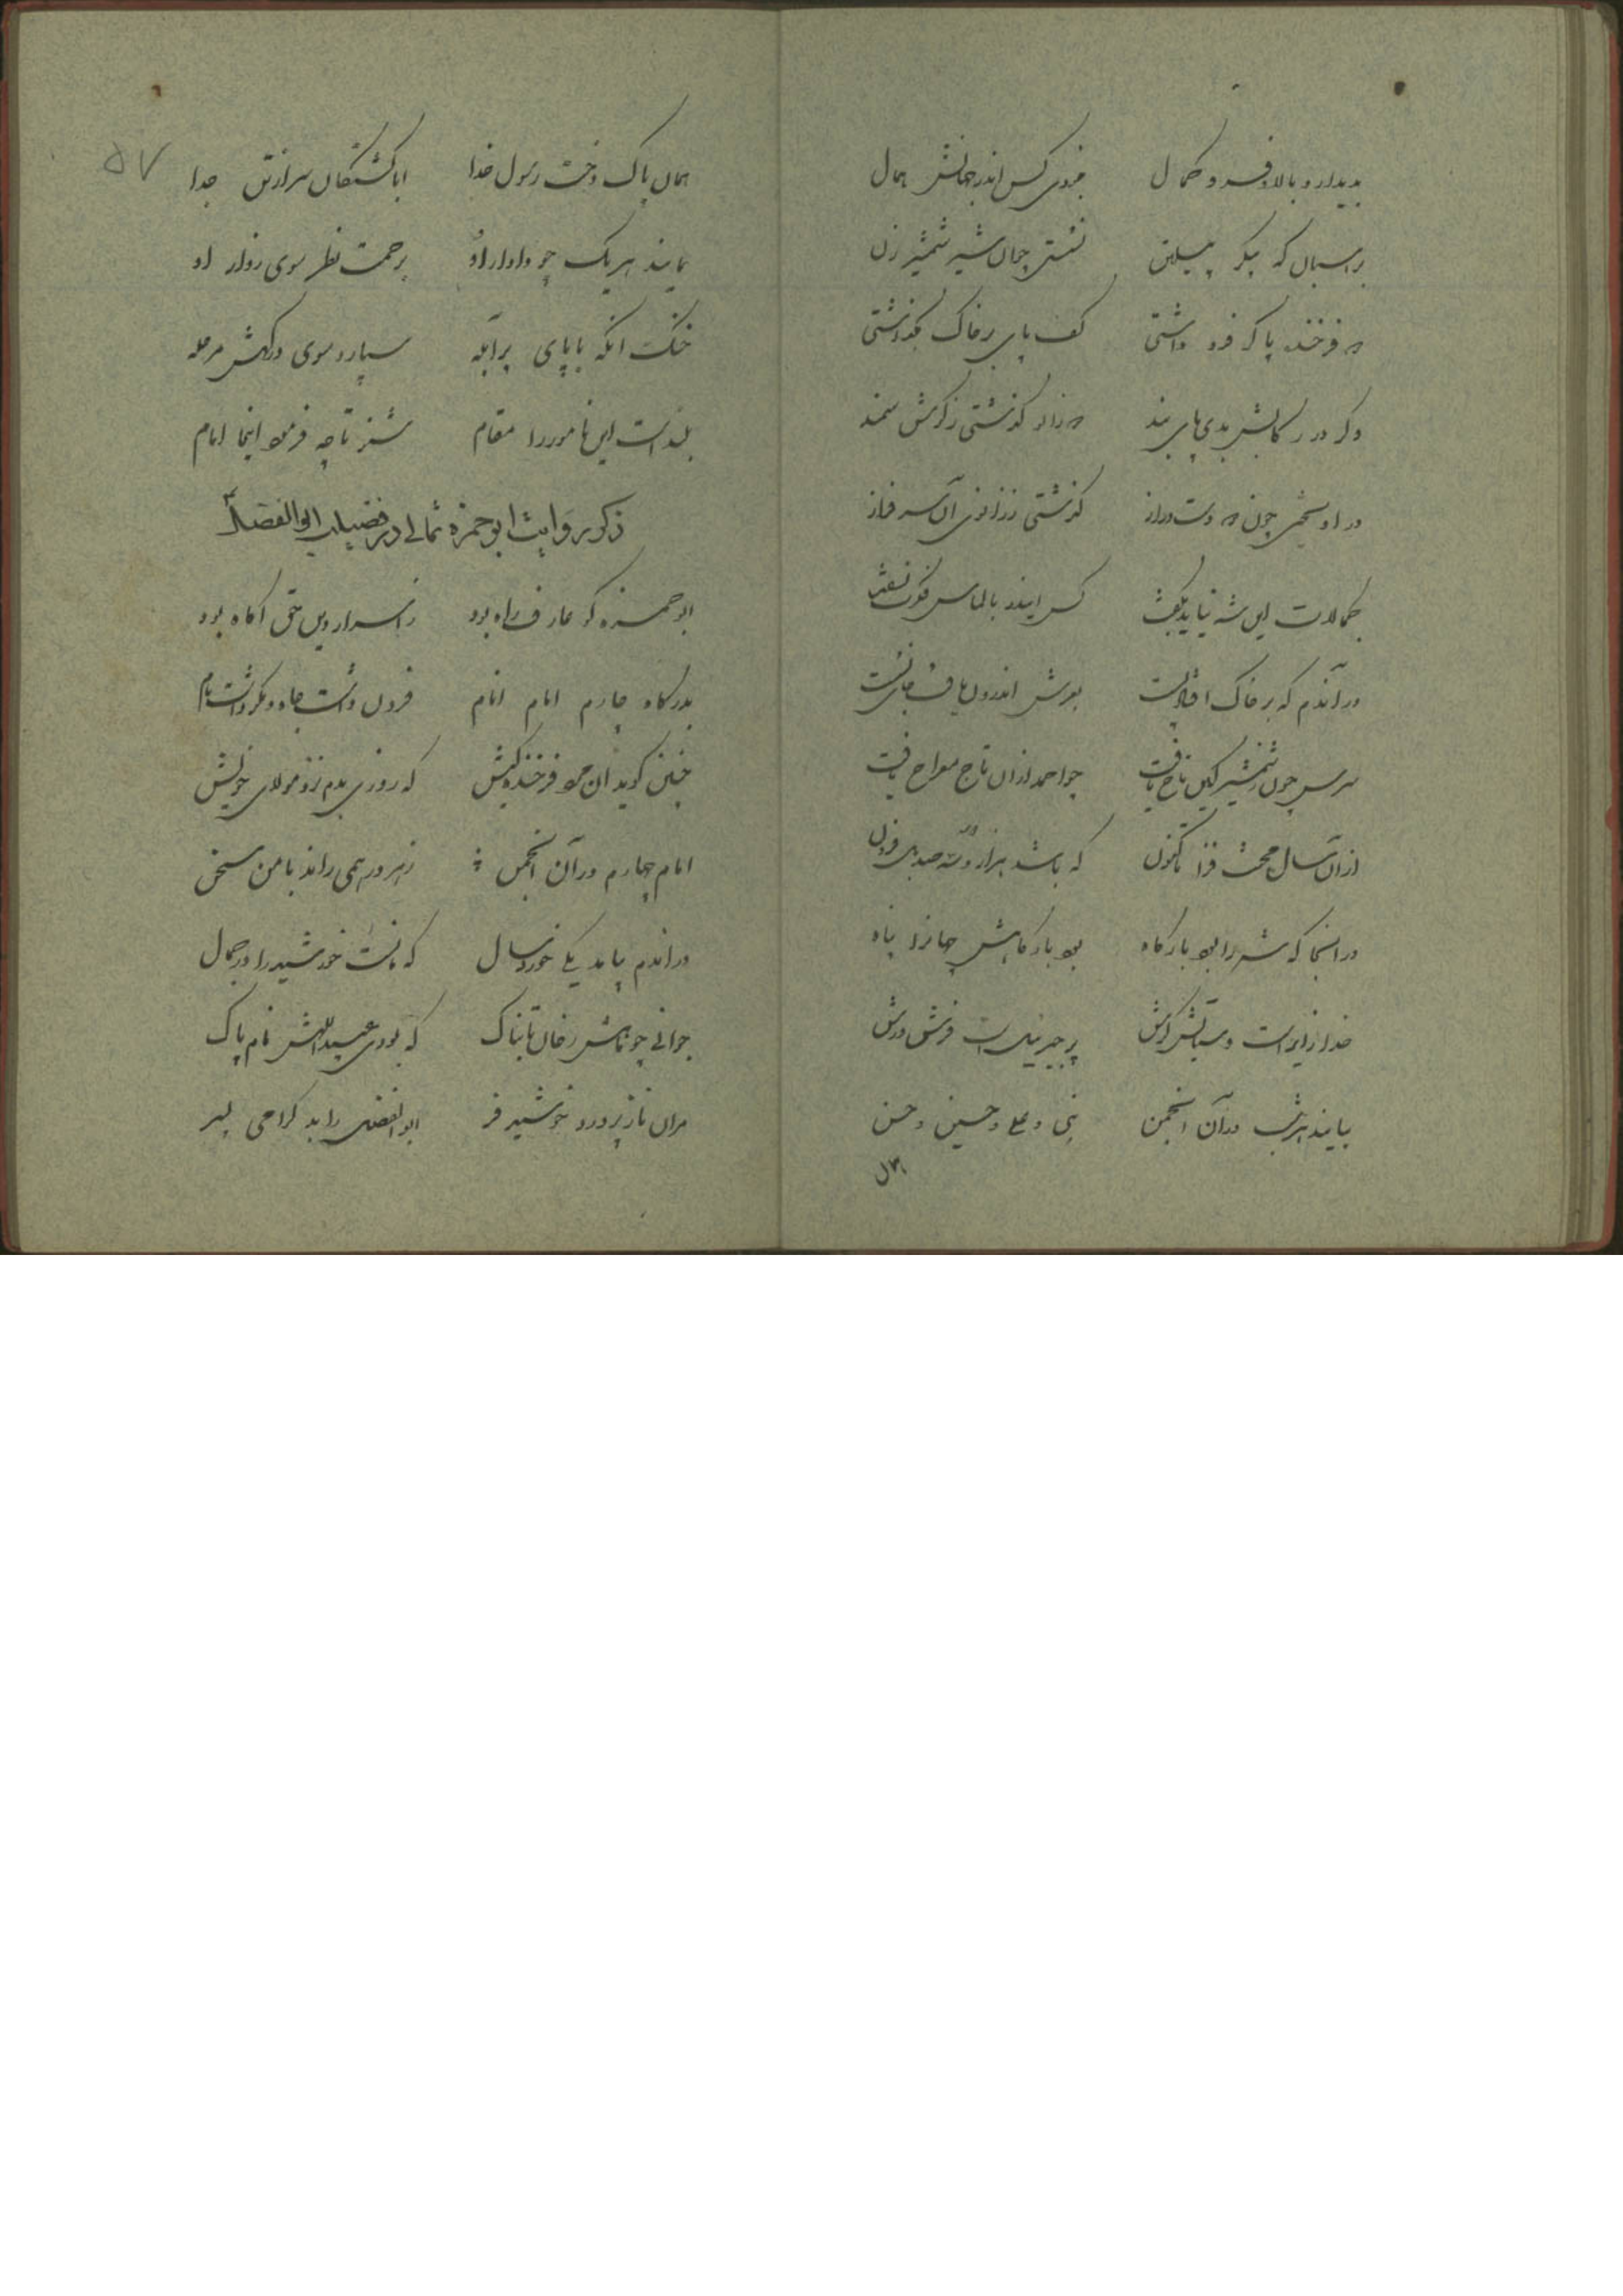 بدیدار و بالا و فر و کمال نبودی کس اندر جهانش همال
بر اسبان که پیکر پیلتن نشستی چو آن شیر شمشیر زن
دو فرخنده پا گر فرو داشتی کف پای بر خاک بگذاشتی
وگر در رکابش بدی پای بند
در او سخمی چون دو دست دراز گذشتی ز زانوی آن سرفراز
کمالات این شه نیاید بگفت کس این در بالماس فکرت نسفت
در آندم که بر خاک افتاد پست بعرش اندرون یافت جای نشست
سرش چون ز شمشیر کین تاج یافت چو احمد از آن تاج معراج یافت
از آن سال محنت فزا تا کنون که باشد هزار و سه صد فزون
در آنجا که شه را بود بارگاه بود بارگاهش جهانرا پناه
خدا زایر است و ستایشگرش پر جبرئیل است فرش درش
بیایند هر شب در آن انجمن نبی و علی و حسین و حسن
۵۷
همان پاک دخت رسول خدا ابا کشتگان سر از تن جدا
نمایند هر یک چو دادار او برحمت نظر سوی زوار او
خنک آنکه با پای پر آبله سپارد سوی درگهش مرحله
بلند است این نامور را مقام شنو تا چه فرمود اینجا امام
ذکر روایت ابوحمزه ثمالی در فضیلت ابوالفضل
ابوحمزه کو عارف راه بود ز اسرار دین حق آگاه بود
بدرگاه چارم امام انام فزون داشت جاه و نکو داشت نام
چنین گوید آن مرد فرخنده کیش که روزی بدم نزد مولای خویش
امام چهارم در آن انجمن ز هر در همی راند با من سخن
در آندم بیامد یکی خوردسال که مانست خورشید را در جمال
جوانی چو ماهش رخان تابناک که بودی عبیداللهش نام پاک
مر آن ناز پرورد خورشید فر ابوالفضل را بد گرامی پسر